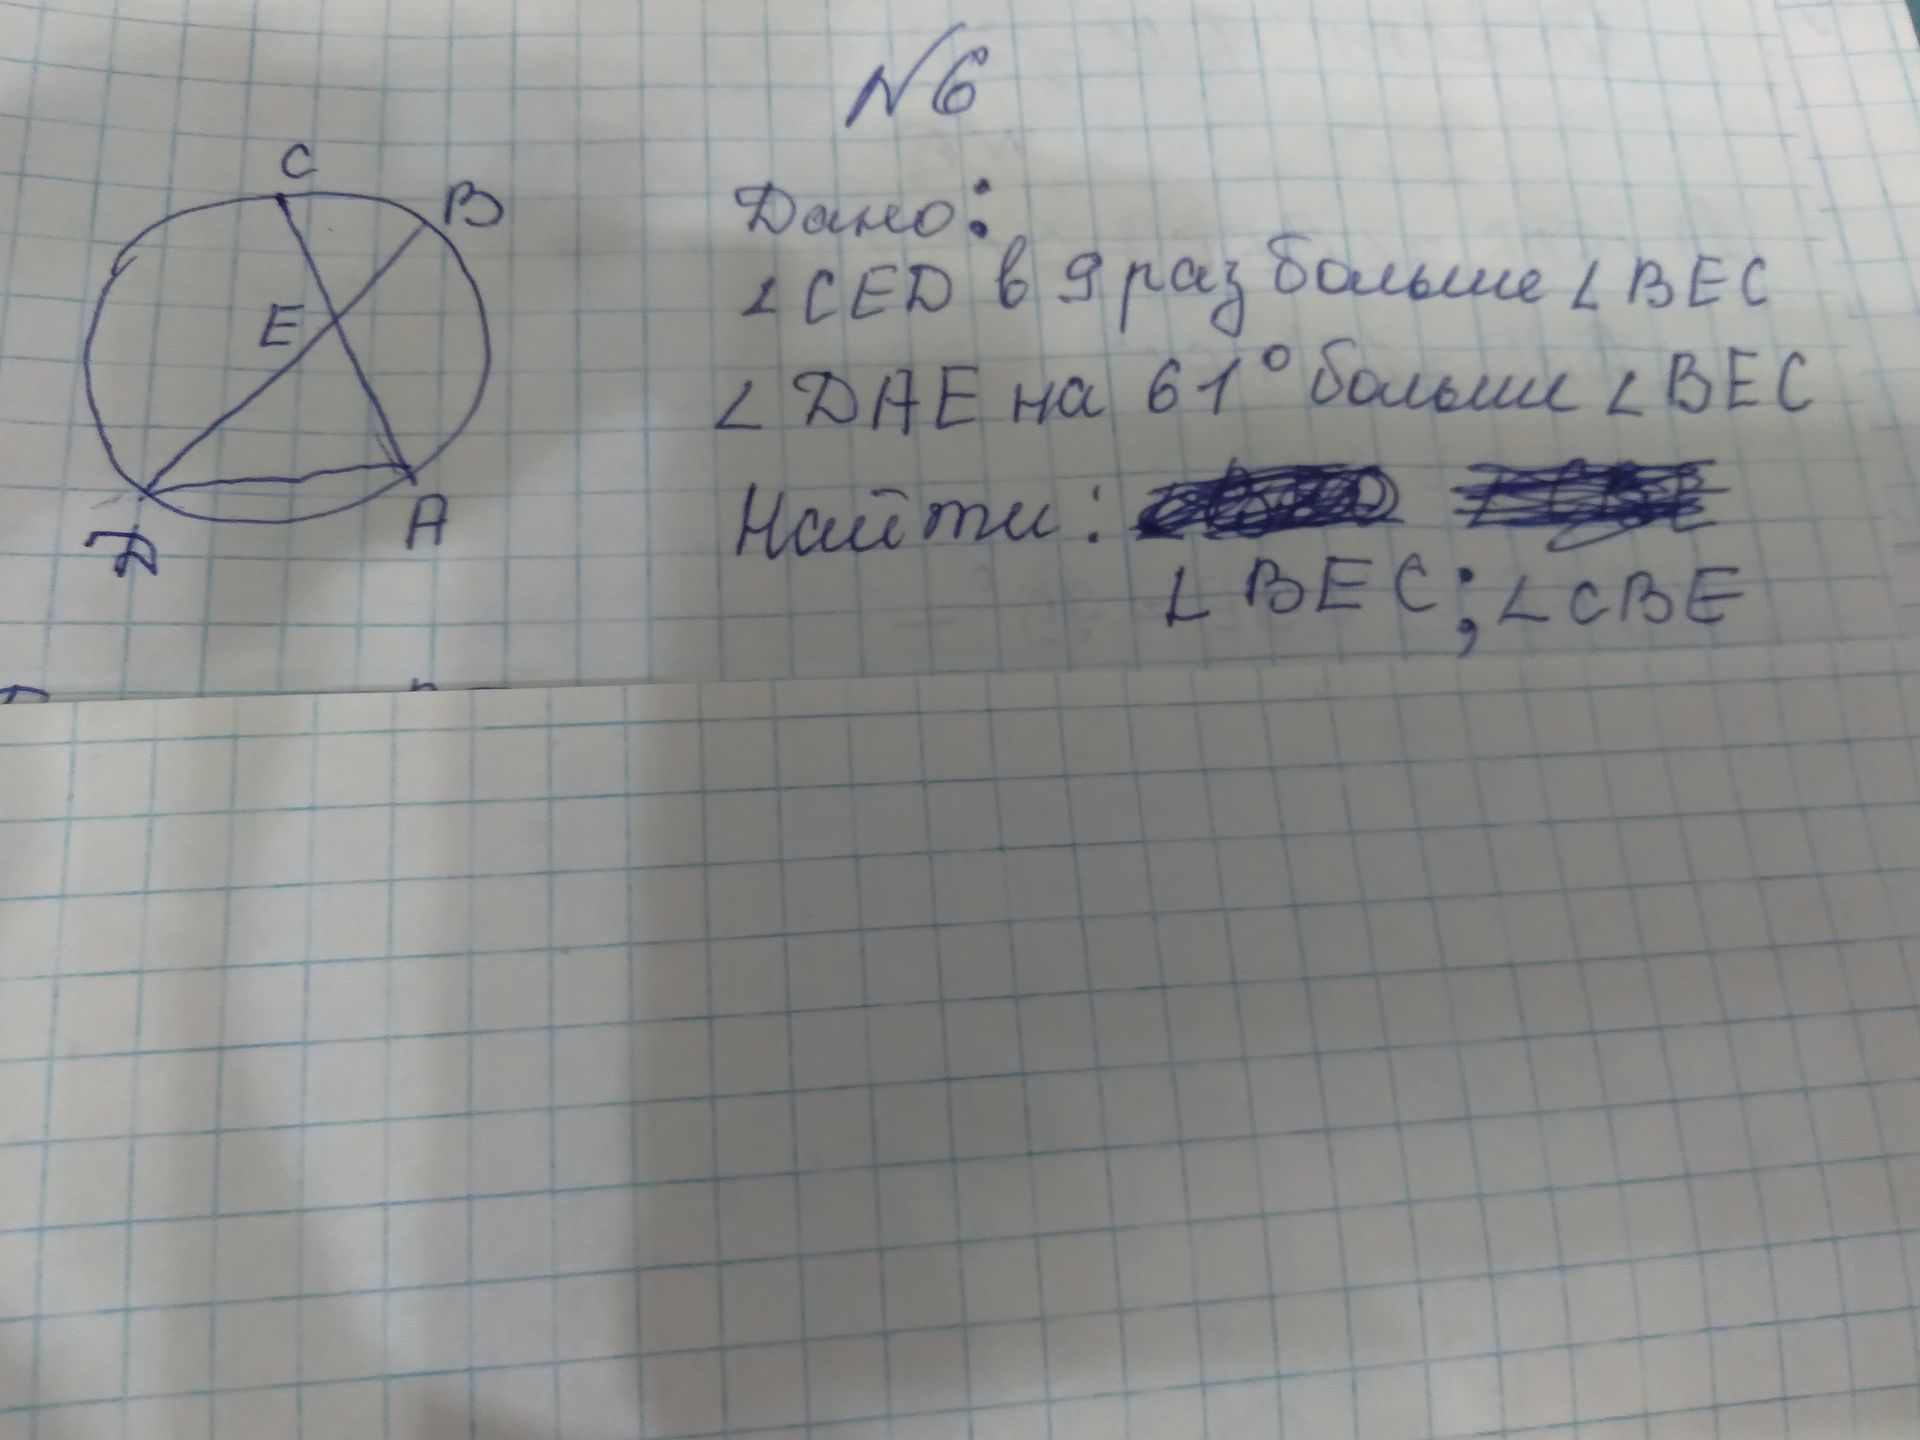 №6
C
B
E
D
A
Дано:
∠CED в 9 раз больше ∠BEC
∠DAE на 61° больше ∠BEC
Найти:
∠BEC; ∠CBE